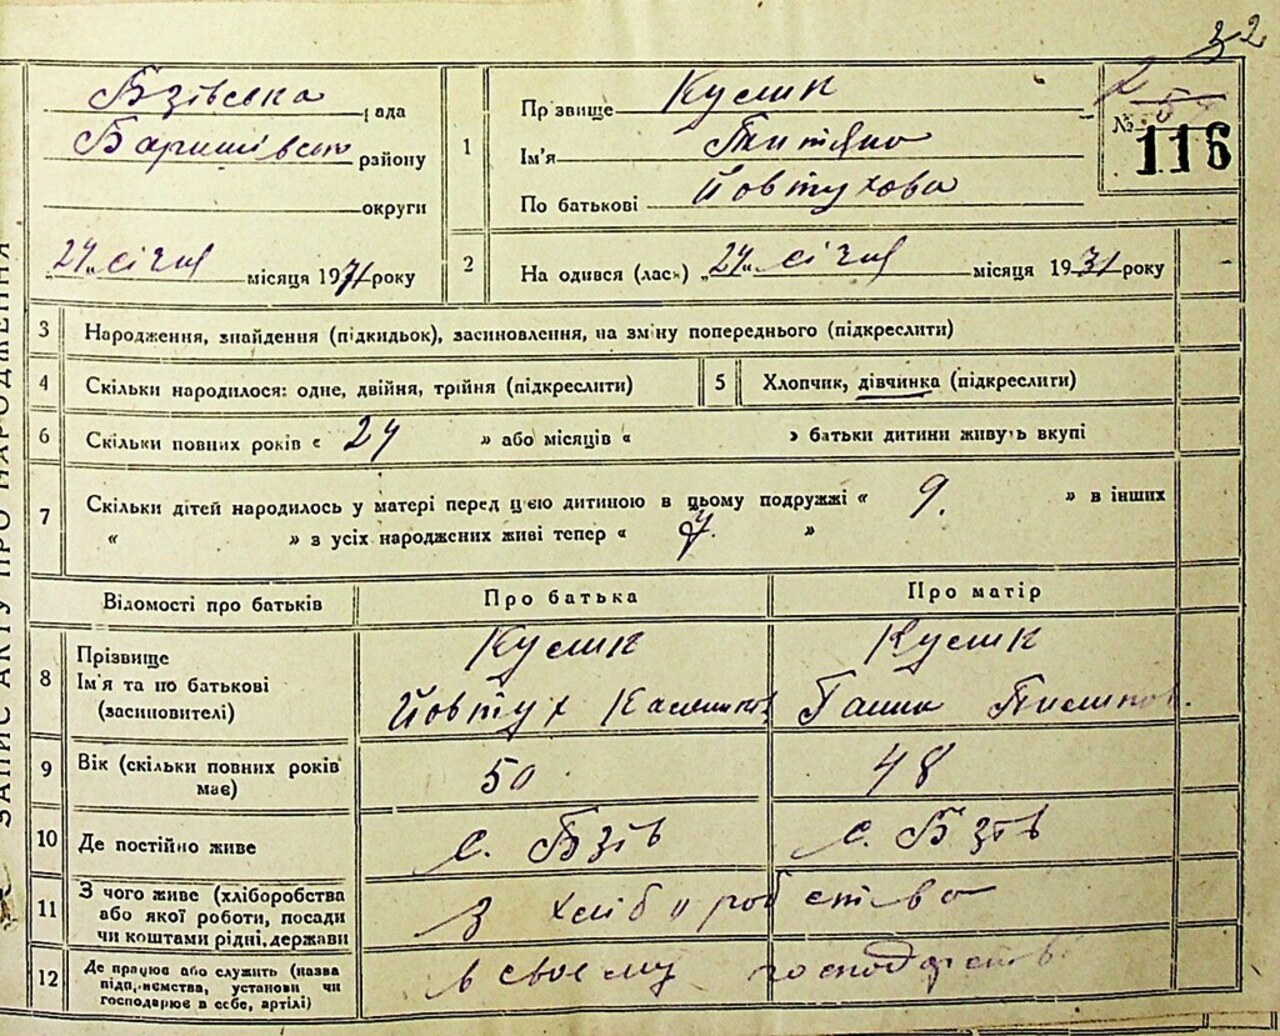 32
Бзівська рада
Баришівськ району
округи
24 січня місяця 1931 року
1
Прізвище Кулик
Ім'я Титяна
По батькові Йовтухова
№ 116
2
На одився (лась) „24" січня місяця 1931 року
3 Народження, знайдення (підкидьок), засиновлення, на зміну попереднього (підкреслити)
4 Скільки народилося: одне, двійня, трійня (підкреслити)
5 Хлопчик, дівчинка (підкреслити)
6 Скільки повних років « 24 » або місяців « » батьки дитини живуть вкупі
7 Скільки дітей народилось у матері перед цією дитиною в цьому подружжі « 9. » в інших
« » з усіх народжених живі тепер « 7. »
Відомості про батьків
Про батька
Про матір
8 Прізвище
Ім'я та по батькові
(засиновителі)
Кулик
Йовтух
Кулик
Ганна
9 Вік (скільки повних років
має)
50
48
10 Де постійно живе
с. Бзів
с. Бзів
11 З чого живе (хліборобства
або якої роботи, посади
чи коштами рідні, держави
З хліборобства
12 Де працює або служить (назва
підприємства, установи чи
господарює в себе, артілі)
в своєму господарстві
ЗАПИС АКТУ ПРО НАРОДЖЕННЯ